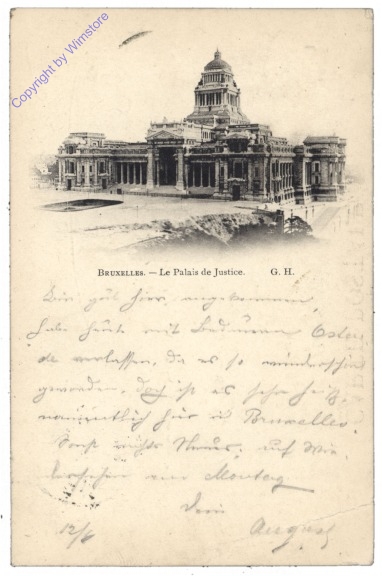 Copyright by Wimstore
BRUXELLES. — Le Palais de Justice. G. H.
Bin gut hier angekommen,
habe heute mit Bedauern Osten
de verlassen, da es so wunderschön
geworden, doch ist es sehr heiß,
namentlich hier in Bruxelles.
Sonst nichts Neues, auf Wie-
dersehen am Montag
Dein
12/6 August